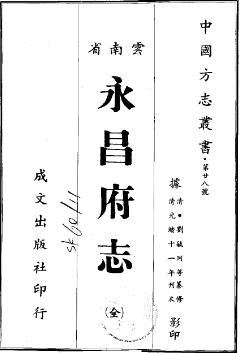 中國方志叢書·第廿八號
據清·劉毓珂等纂修
清光緒十一年刊本 影印
雲南省
永昌府志
(全)
成文出版社印行